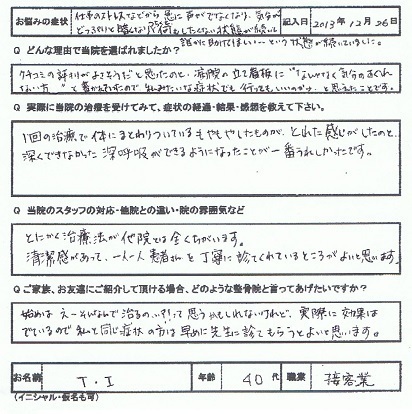 お悩みの症状
仕事のストレスなどから急に声がでなくなり、気分が
どうしようもなく 何もしたくない状態が続いて
誰かに助けてほしい…という状態が続いていました。
記入日 2013年12月26日
Q どんな理由で当院を選ばれましたか?
クチコミの評判がよさそうだと思ったのと、病院の立て看板に"なんとなく気分のすぐれ
ない方…"と書かれていたので 私みたいな症状でも行ってもいいのか、と思えたことです。
Q 実際に当院の治療を受けてみて、症状の経過・結果・感想を教えて下さい。
1回の治療で体にまとわりついているもやもやしたものが、とれた感じがしたのと、
深くできなかった深呼吸ができるようになったことが一番うれしかったです。
Q 当院のスタッフの対応・他院との違い・院の雰囲気など
とにかく治療法が他院とは全くちがいます。
清潔感があって、一人一人患者さんを丁寧に診てくれているところがよいと思います。
Q ご家族、お友達にご紹介して頂ける場合、どのような整骨院と言ってあげたいですか?
始めは えーそんなんで治るの…!?って思うかもしれないけれど、実際に効果は
でているので 私と同じ症状の方は早めに先生に診てもらうとよいと思います。
お名前 T・I 年齢 40代 職業 接客業
(イニシャル・仮名も可)